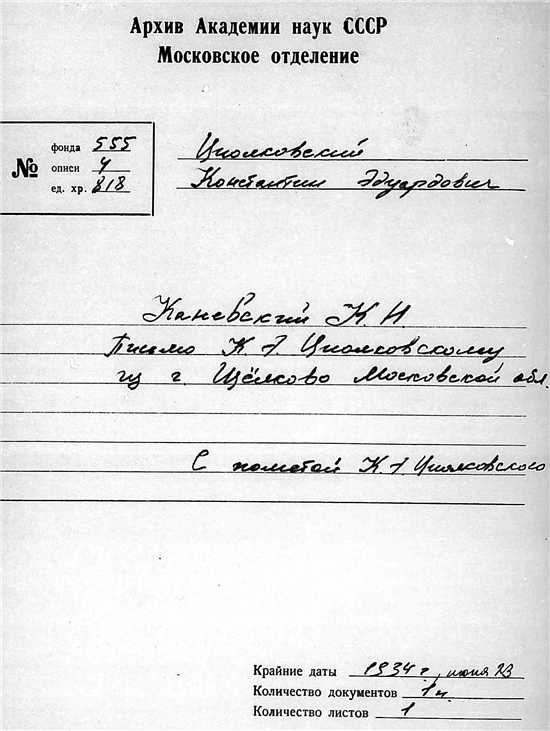 Архив Академии наук СССР
Московское отделение
№
фонда 555
описи 4
ед. хр. 818
Циолковский
Константин Эдуардович
Каневский К. И
Письмо К Э Циолковскому
из г. Щёлково Московской обл.
С пометой К Э. Циолковского
Крайние даты 1934 г, июня 23
Количество документов 1
Количество листов 1